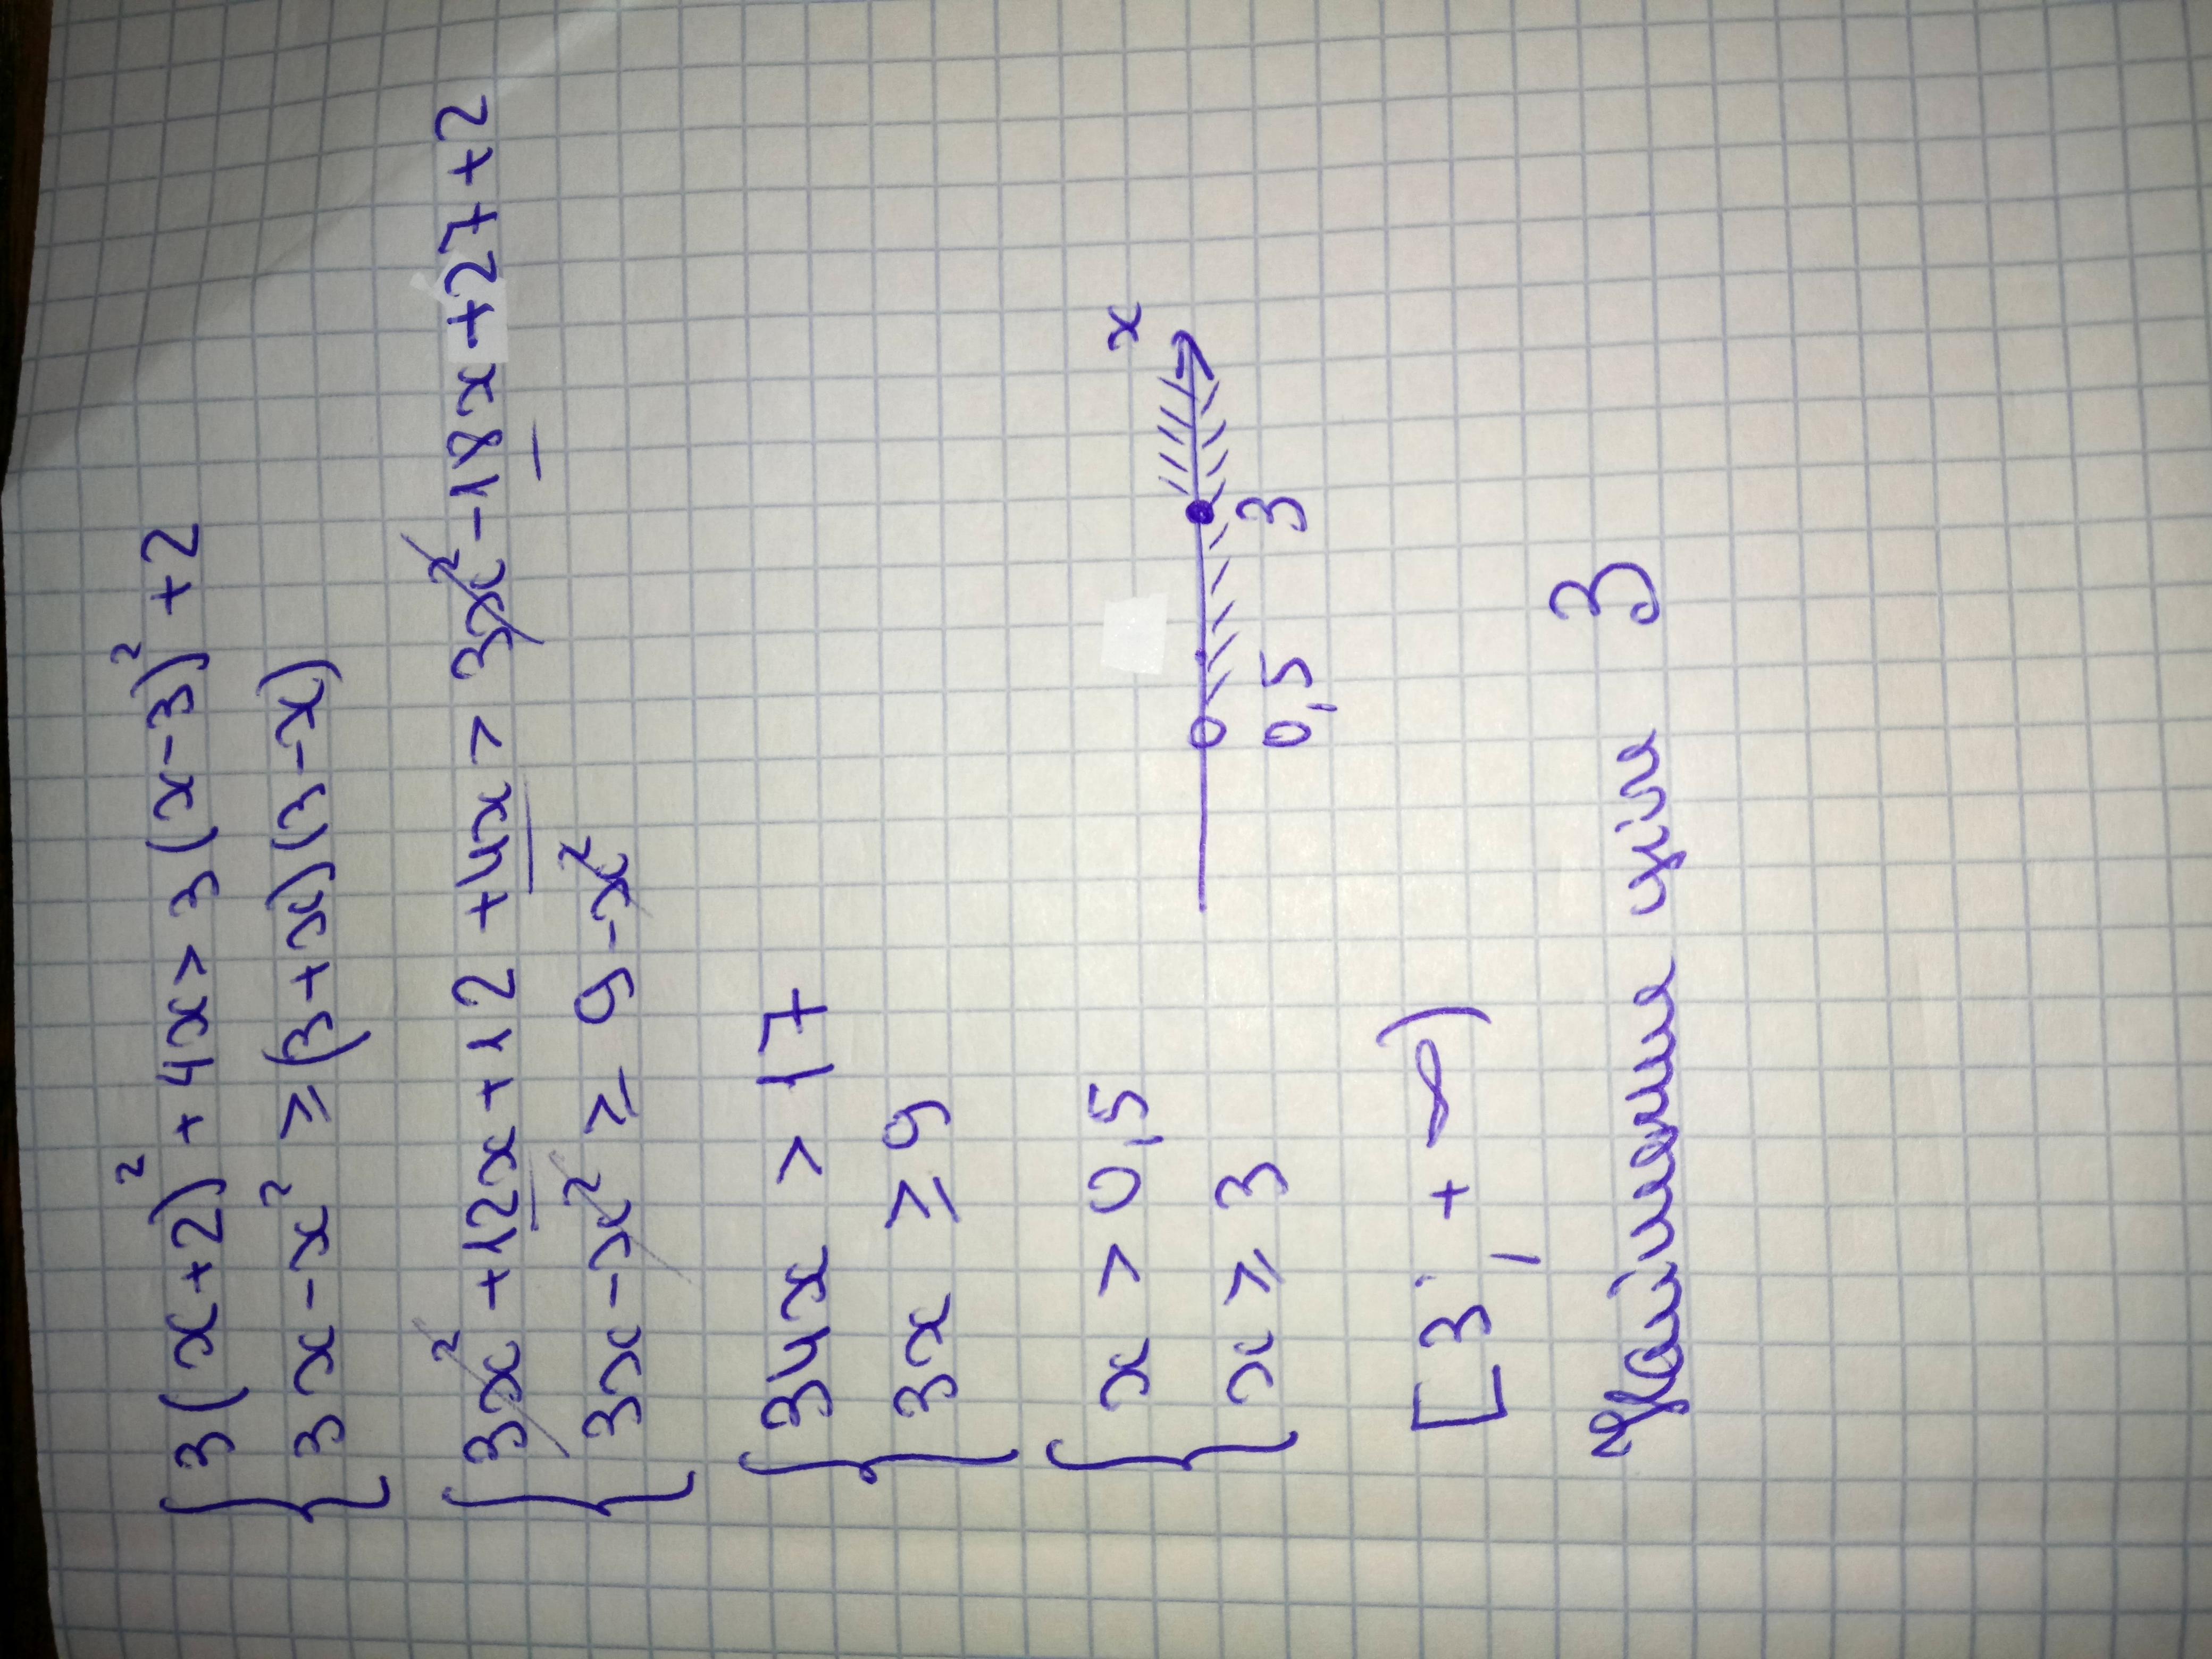 3(x+2)² + 4x > 3(x-3)² + 2
3x - x² ≥ (3+x)(3-x)
3x² + 12x + 12 + 4x > 3x² - 18x + 27 + 2
3x - x² ≥ 9 - x²
34x > 17
3x ≥ 9
x > 0,5
x ≥ 3
x
0,5 3
[3; +∞)
Найменше ціле 3